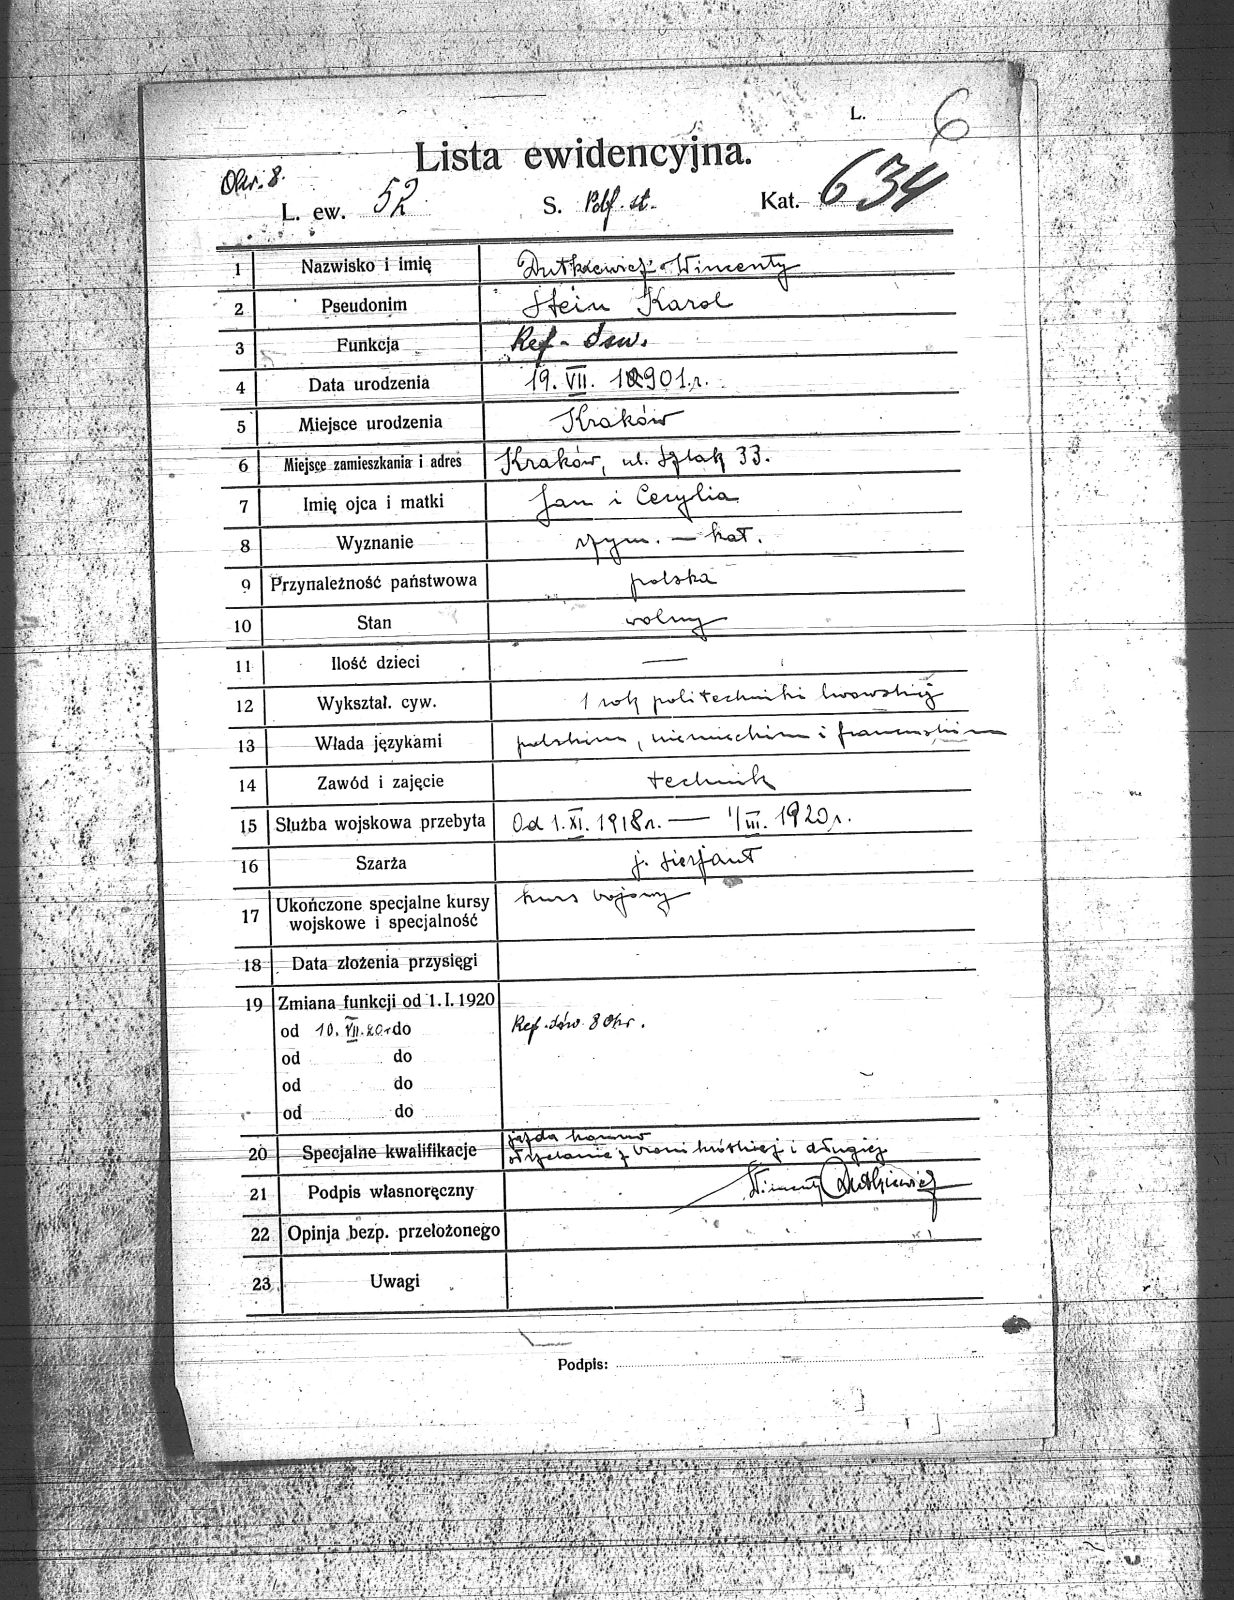 L. 6
Lista ewidencyjna.
Okr. 8.
L. ew. 52 S. Kat. 634
1 Nazwisko i imię Dutkiewicz Wincenty
2 Pseudonim Stein Karol
3 Funkcja Ref.
4 Data urodzenia 19. VII. 1901.r.
5 Miejsce urodzenia Kraków
6 Miejsce zamieszkania i adres Kraków, ul. Szlak 33.
7 Imię ojca i matki Jan i Cecylia
8 Wyznanie rzym. — kat.
9 Przynależność państwowa polska
10 Stan wolny
11 Ilość dzieci —
12 Wykształ. cyw. 1 rok politechniki lwowskiej
13 Włada językami polskim, niemieckim i francuskim
14 Zawód i zajęcie technik
15 Służba wojskowa przebyta Od 1. XI. 1918 r. — 1/III. 1920 r.
16 Szarża sierżant
17 Ukończone specjalne kursy
wojskowe i specjalność kurs
18 Data złożenia przysięgi
19 Zmiana funkcji od 1. I. 1920
od 10. VII. 20 r do Ref. 8 Okr.
od do
od do
od do
20 Specjalne kwalifikacje jazda konno
strzelanie z broni krótkiej i długiej
21 Podpis własnoręczny Wincenty Dutkiewicz
22 Opinja bezp. przełożonego
23 Uwagi
Podpis: